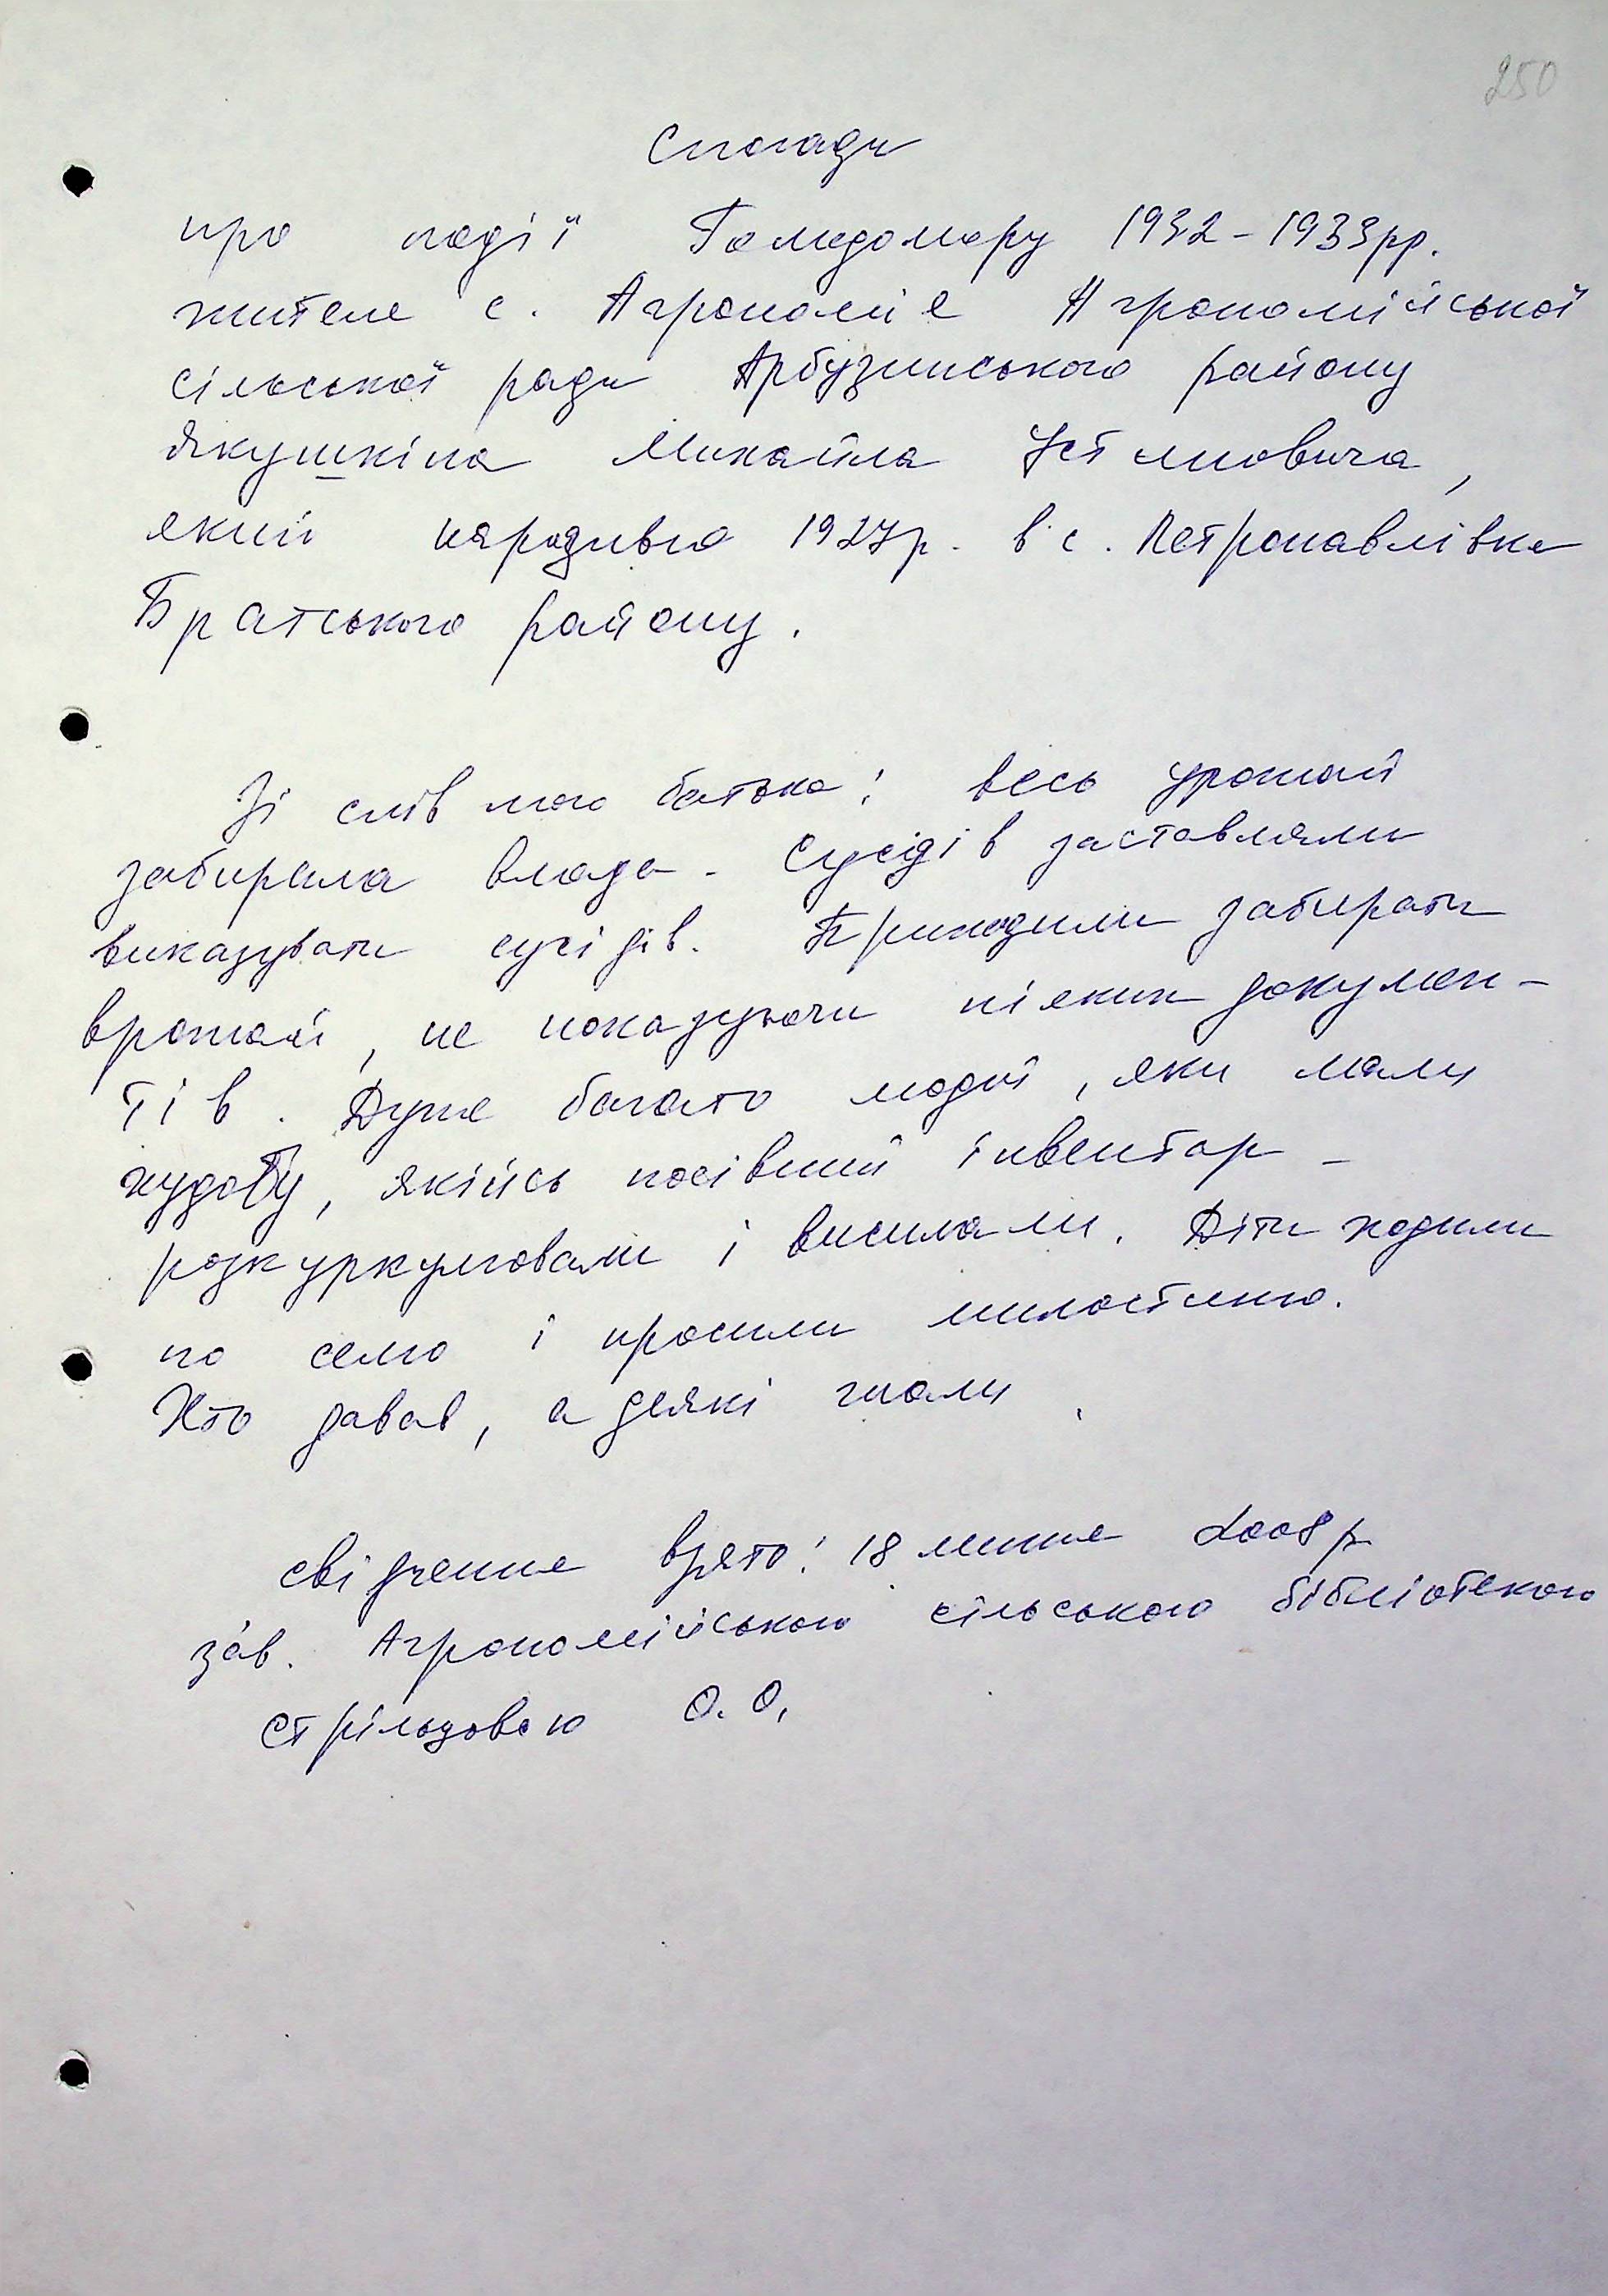 250
Спогади
про події Голодомору 1932-1933рр.
жителя с. Агрономія Агрономійської
сільської ради Арбузинського району
Якушкіна Михайла Устимовича,
який народився 1927р. в с. Петропавлівка
Братського району.
Зі слів мого батька: весь урожай
забирала влада. Сусідів заставляли
виказувати сусідів. Приходили забирати
врожай, не показуючи ніяких докумен-
тів. Дуже багато людей, яки мали
худобу, якійсь посівний інвентар -
розкуркулювали і висилали. Діти ходили
по селю і просили милостиню.
Хто давав, а деякі гнали.
свідчення взято: 18 липня 2008р
зав. Агрономійською сільською бібліотекою
Стрільцовою О.О.